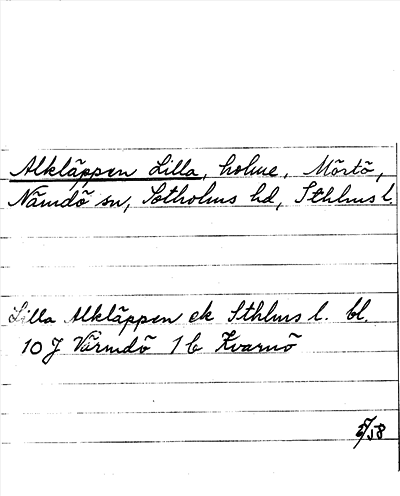 Alkläppen Lilla, holme, Mörtö,
Nämdö sn, Sotholms hd, Sthlms l.
Lilla Alkläppen ek Sthlms l. bl.
10 J Värmdö 1 b Kvarnö